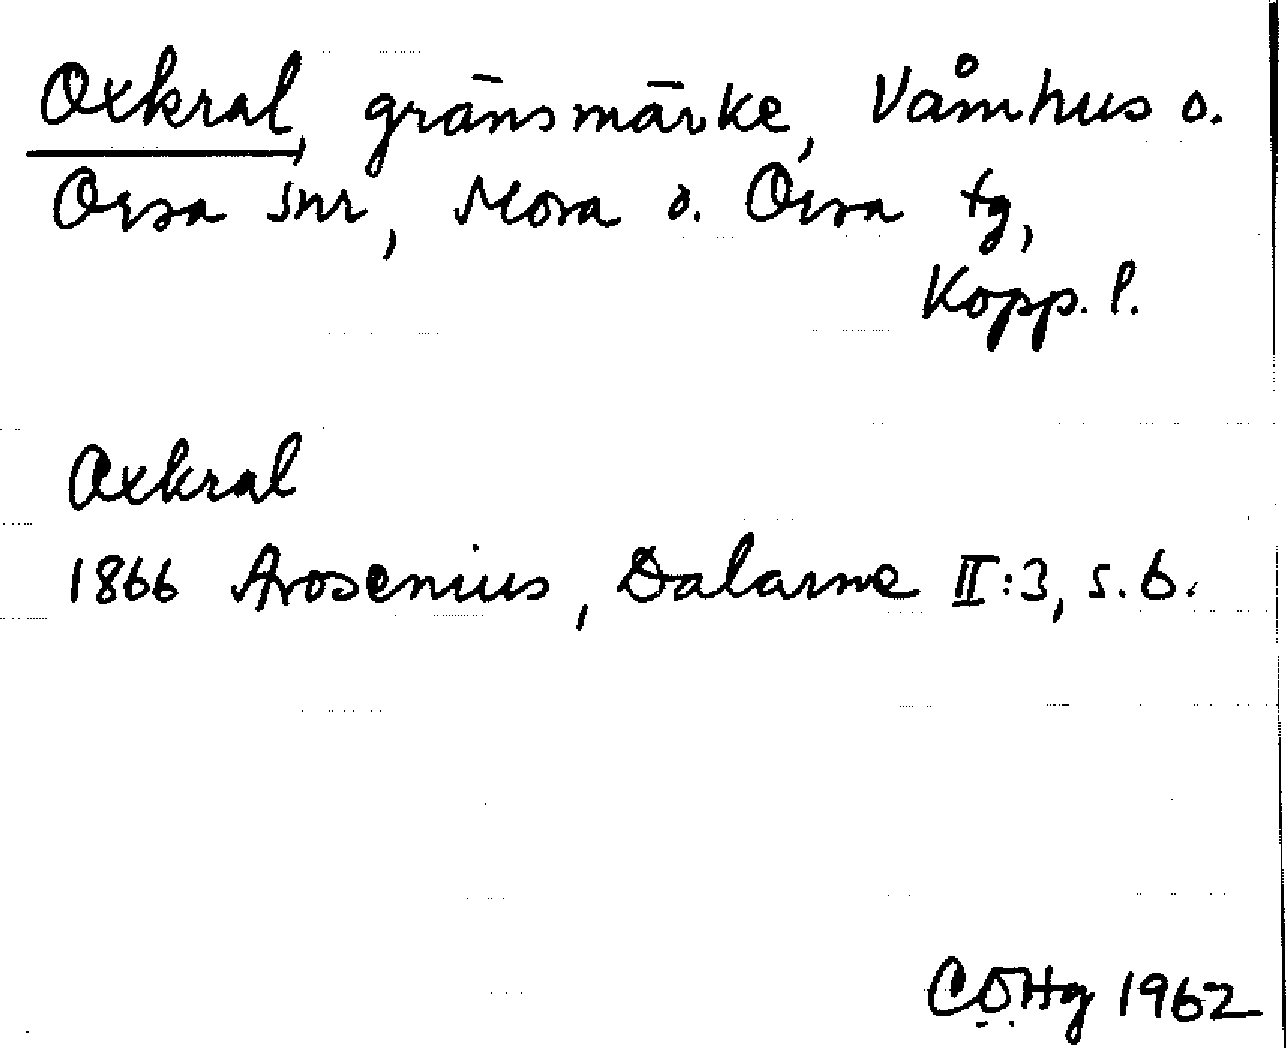 Oxkral, gränsmärke, Våmhus o.
Orsa snr, Mora o. Orsa tg,
Kopp. l.
Oxkral
1866 Arosenius, Dalarne II:3, s. 6.
CÖHg 1962